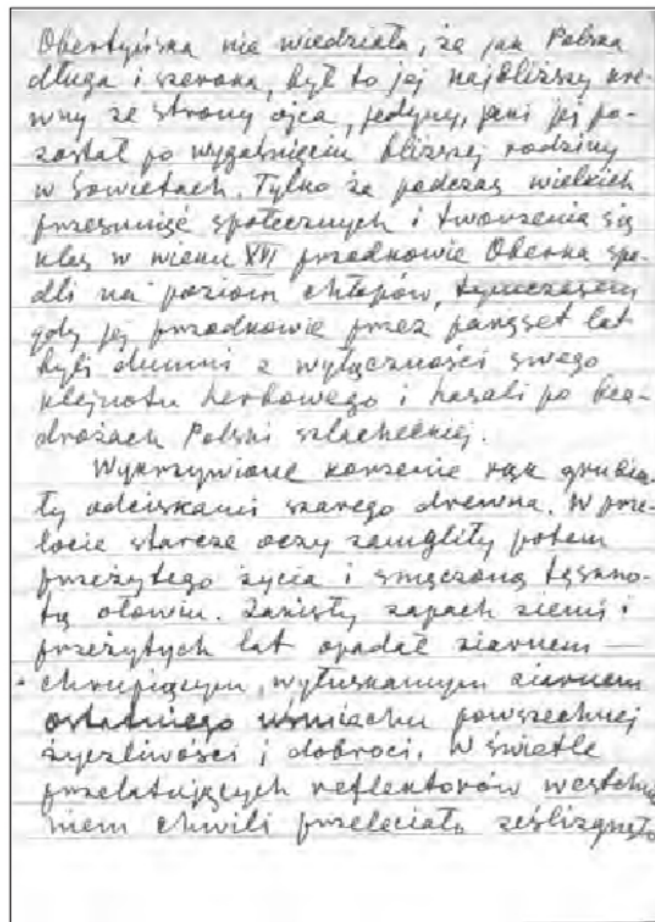 Obertyńska nie wiedziała, że jak Polska
długa i szeroka, był to jej najbliższy kre-
wny ze strony ojca, jedyny, jaki jej po-
został po wygaśnięciu bliższej rodziny
w Sowietach. Tylko że podczas wielkich
przesunięć społecznych i tworzenia się
klas w wieku XVI przodkowie Oberka spa-
dli na poziom chłopów, tymczasem
gdy jej przodkowie przez paręset lat
byli dumni z wyłączności swego
klejnotu herbowego i hasali po bez-
drożach Polski szlacheckiej.
Wykrzywione korzenie rąk grubia-
ły odciskami szarego drewna. W prze-
locie starcze oczy zamgliły potem
przeżytego życia i zmęczoną tęskno-
tą ołowiu. Zawisły zapach ziemi i
przeżytych lat opadał ziarnem —
chrupiącym, wyłuskanym ziarnem
ostatniego uśmiechu powszechnej
życzliwości i dobroci. W świetle
przelatujących reflektorów westchn
niem chwili przeleciało, ześlizgnęło